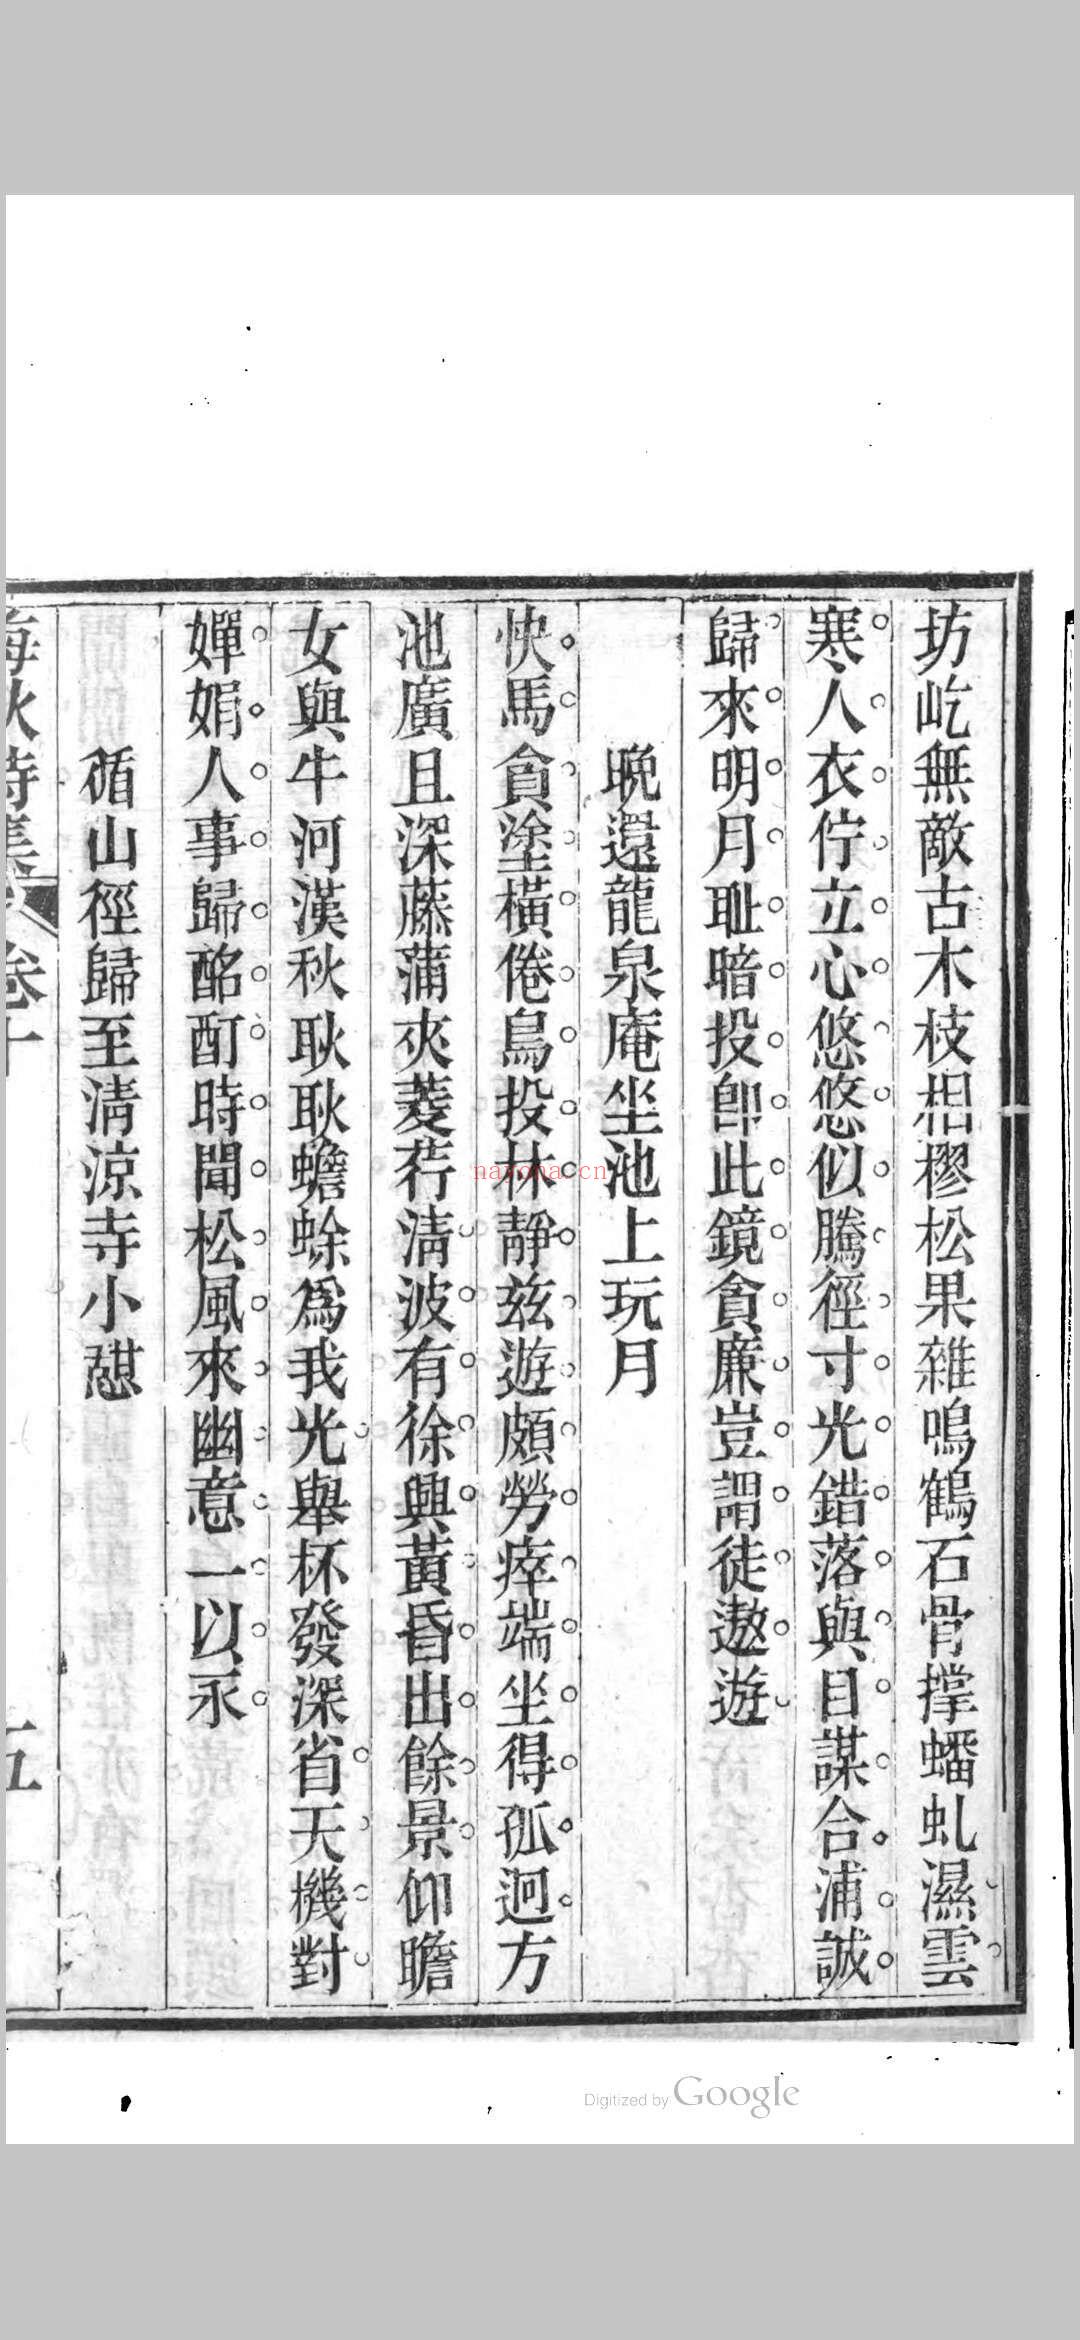 坊屹無敵古木枝相樛松果雜鳴鶴石骨撑蟠虬濕雲
寒人衣佇立心悠悠似騰徑寸光錯落與目謀合浦誠
歸來明月耻暗投卽此鏡貪廉豈謂徒遨遊
晚還龍泉庵坐池上玩月
快馬貪塗橫倦鳥投林靜茲遊頗勞瘁端坐得孤迥方
池廣且深藤蒲夾菱荇淸波有徐興黃昏出餘景仰瞻
女與牛河漢秋耿耿蟾蜍爲我光舉杯發深省天機對
嬋娟人事歸酩酊時聞松風來幽意一以永
循山徑歸至淸涼寺小憇
海秋詩集 卷十 五
nayona.cn
Digitized by Google